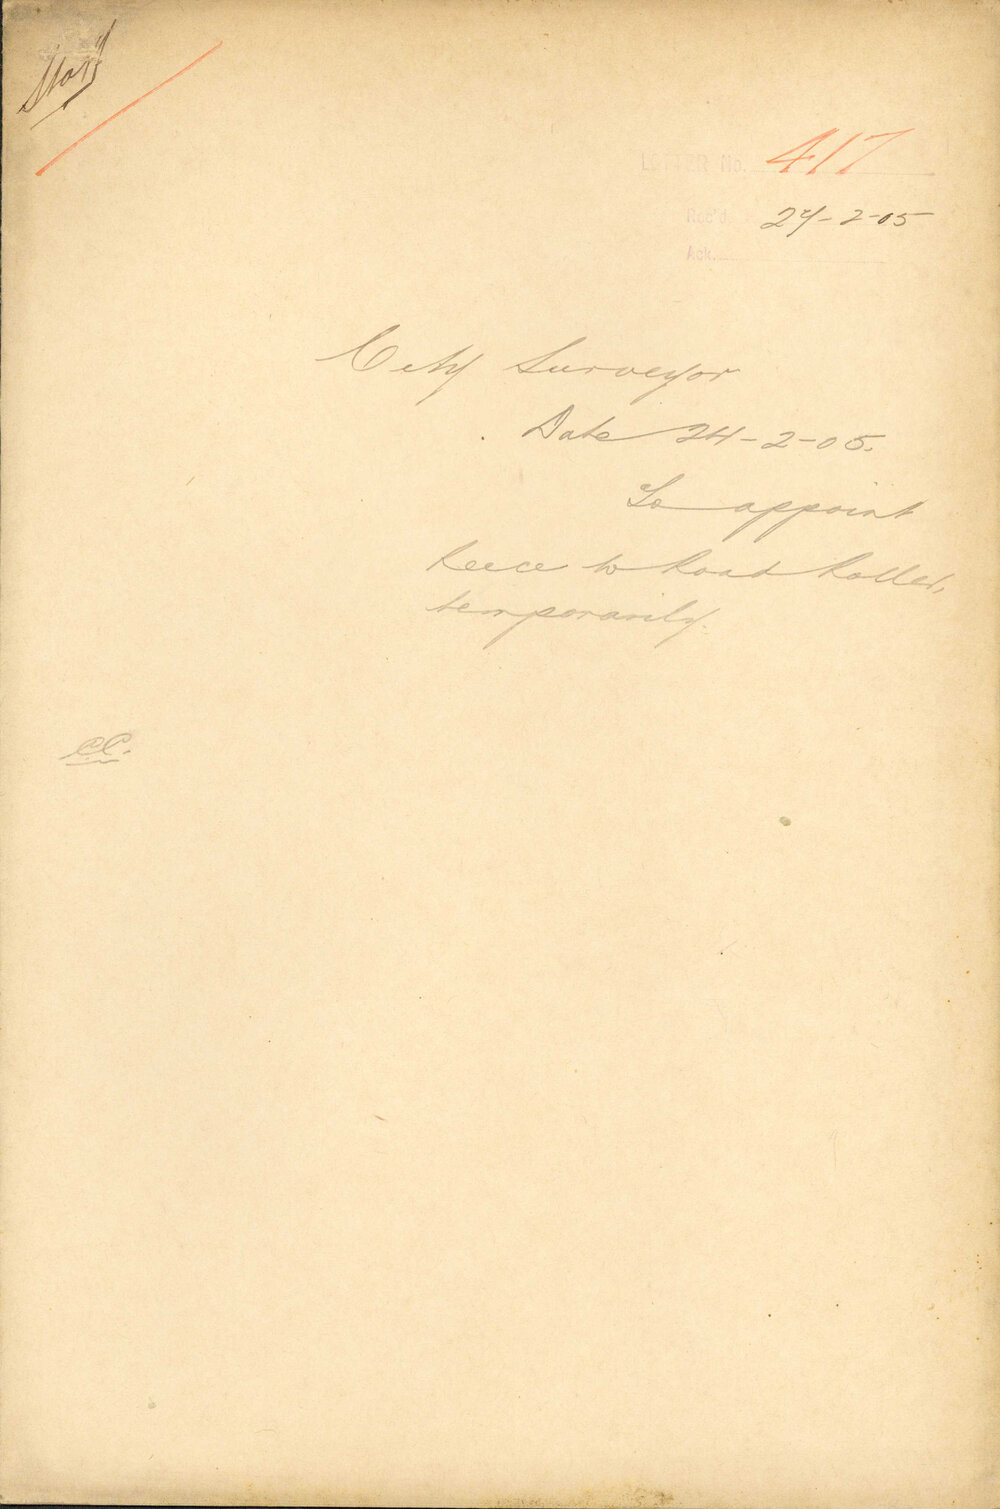 Staff
LETTER No. 417
Rec'd. 27-2-05
Ack.
City Surveyor
Date 24-2-05.
To appoint
Reece to Road Roller,
temporarily.
CC.